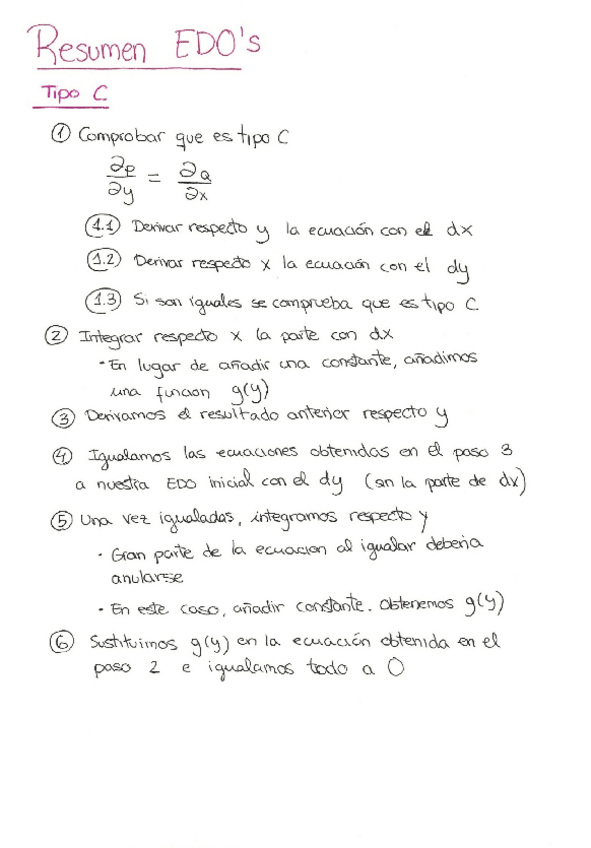 Resumen EDO's
Tipo C
① Comprobar que es tipo C
∂P/∂y = ∂Q/∂x
1.1 Derivar respecto y la ecuación con el dx
1.2 Derivar respecto x la ecuación con el dy
1.3 Si son iguales se comprueba que es tipo C
② Integrar respecto x la parte con dx
· En lugar de añadir una constante, añadimos
una funcion g(y)
③ Derivamos el resultado anterior respecto y
④ Igualamos las ecuaciones obtenidas en el paso 3
a nuestra EDO inicial con el dy (sin la parte de dx)
⑤ Una vez igualadas, integramos respecto y
· Gran parte de la ecuacion al igualar deberia
anularse
· En este caso, añadir constante. Obtenemos g(y)
⑥ Sustituimos g(y) en la ecuación obtenida en el
paso 2 e igualamos todo a 0